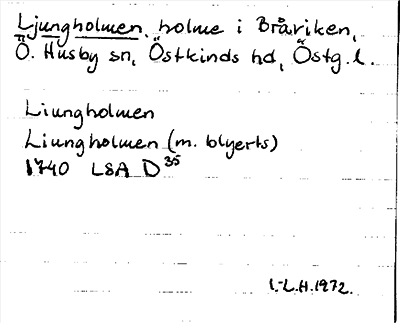 Ljungholmen, holme i Bråviken,
Ö. Husby sn, Östkinds hd, Östg. l.
Liungholmen
Liungholmen (m. blyerts)
1740 LSA D 35
I.-L.H. 1972.